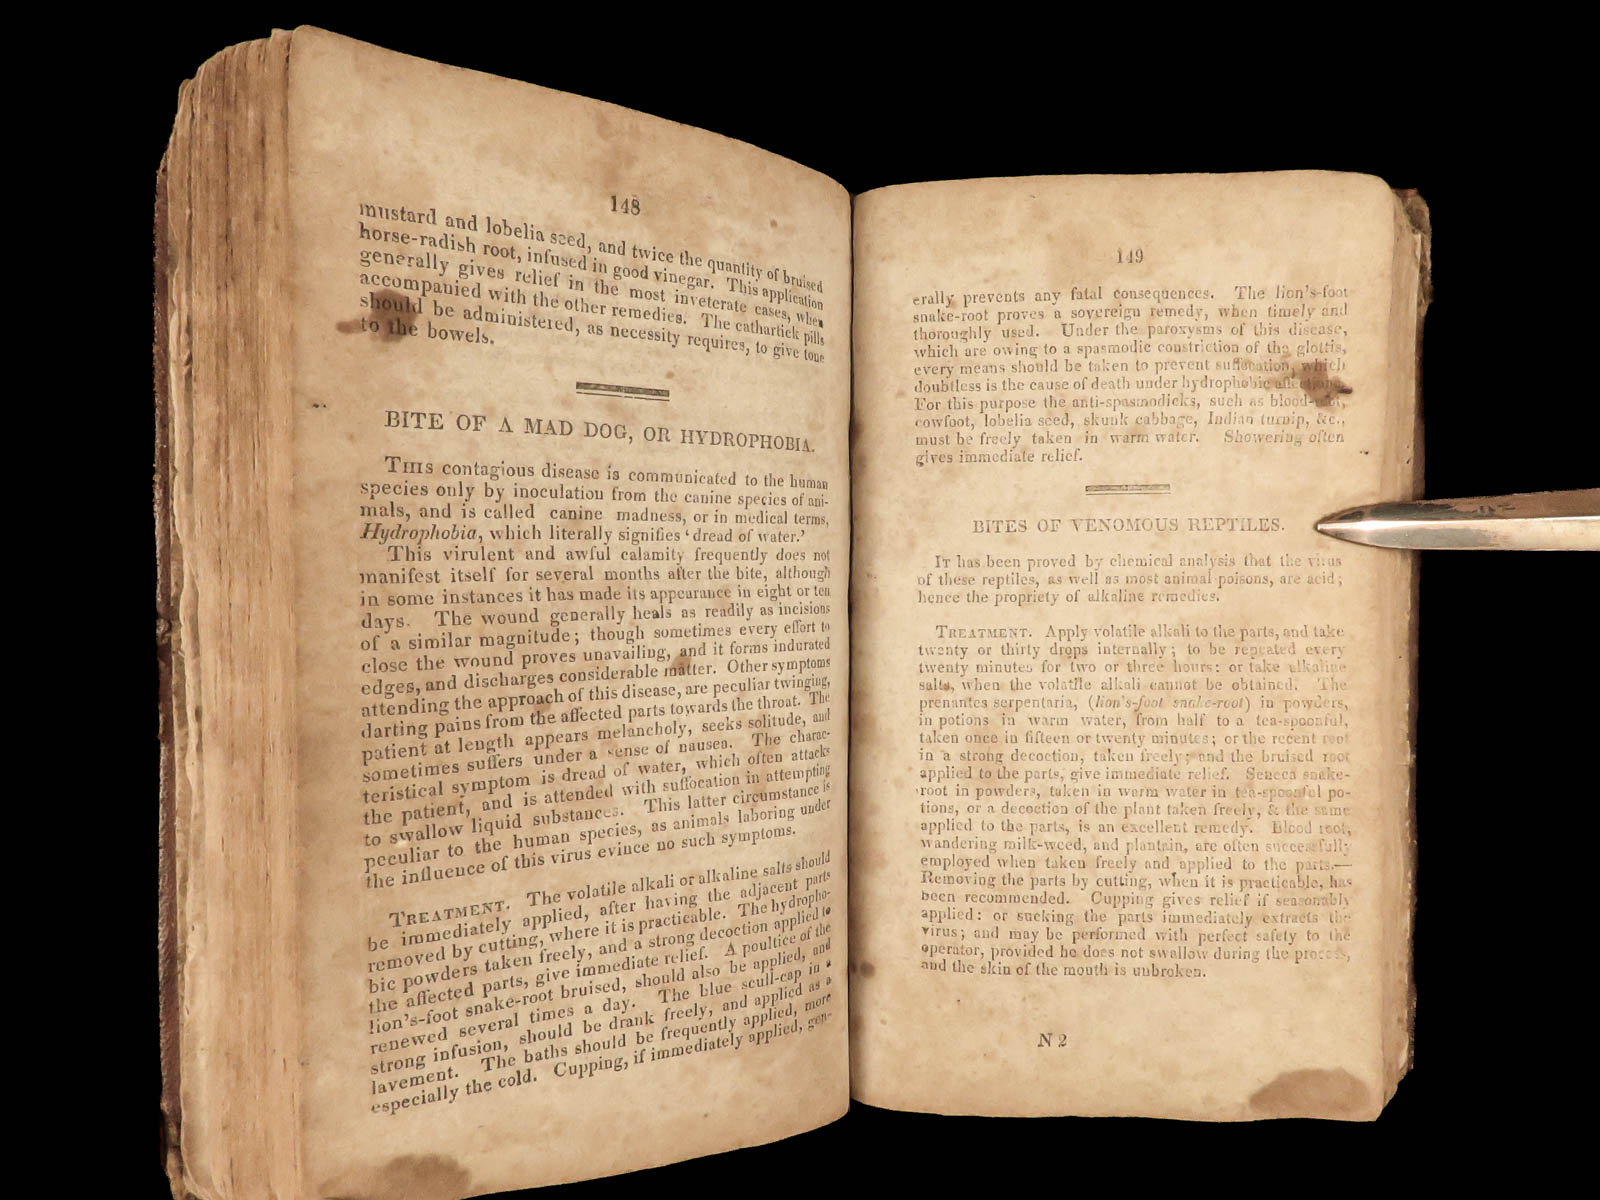 148
mustard and lobelia seed, and twice the quantity of bruised
horse-radish root, infused in good vinegar. This application
generally gives relief in the most inveterate cases, when
accompanied with the other remedies. The cathartick pills
should be administered, as necessity requires, to give tone
to the bowels.
BITE OF A MAD DOG, OR HYDROPHOBIA.
THIS contagious disease is communicated to the human
species only by inoculation from the canine species of ani-
mals, and is called canine madness, or in medical terms,
Hydrophobia, which literally signifies ‘dread of water.’
This virulent and awful calamity frequently does not
manifest itself for several months after the bite, although
in some instances it has made its appearance in eight or ten
days. The wound generally heals as readily as incisions
of a similar magnitude; though sometimes every effort to
close the wound proves unavailing, and it forms indurated
edges, and discharges considerable matter. Other symptoms
attending the approach of this disease, are peculiar twinging,
darting pains from the affected parts towards the throat. The
patient at length appears melancholy, seeks solitude, and
sometimes suffers under a sense of nausea. The charac-
teristical symptom is dread of water, which often attacks
the patient, and is attended with suffocation in attempting
to swallow liquid substances. This latter circumstance is
peculiar to the human species, as animals laboring under
the influence of this virus evince no such symptoms.
TREATMENT. The volatile alkali or alkaline salts should
be immediately applied, after having the adjacent parts
removed by cutting, where it is practicable. The hydropho-
bic powders taken freely, and a strong decoction applied to
the affected parts, give immediate relief. A poultice of the
lion's-foot snake-root bruised, should also be applied, and
renewed several times a day. The blue scull-cap in a
strong infusion, should be drank freely, and applied as a
lavement. The baths should be frequently applied, more
especially the cold. Cupping, if immediately applied, gen-
149
erally prevents any fatal consequences. The lion's-foot
snake-root proves a sovereign remedy, when timely and
thoroughly used. Under the paroxysms of this disease,
which are owing to a spasmodic constriction of the glottis,
every means should be taken to prevent suffocation, which
doubtless is the cause of death under hydrophobic affections.
For this purpose the anti-spasmodicks, such as blood-root,
cowfoot, lobelia seed, skunk cabbage, Indian turnip, &c.,
must be freely taken in warm water. Showering often
gives immediate relief.
BITES OF VENOMOUS REPTILES.
IT has been proved by chemical analysis that the virus
of these reptiles, as well as most animal poisons, are acid;
hence the propriety of alkaline remedies.
TREATMENT. Apply volatile alkali to the parts, and take
twenty or thirty drops internally; to be repeated every
twenty minutes for two or three hours: or take alkaline
salts, when the volatile alkali cannot be obtained. The
prenantes serpentaria, (lion's-foot snake-root) in powders,
in potions in warm water, from half to a tea-spoonful,
taken once in fifteen or twenty minutes; or the recent root
in a strong decoction, taken freely; and the bruised root
applied to the parts, give immediate relief. Seneca snake-
root in powders, taken in warm water in tea-spoonful po-
tions, or a decoction of the plant taken freely, & the same
applied to the parts, is an excellent remedy. Blood root,
wandering milk-weed, and plantain, are often successfully
employed when taken freely and applied to the parts.—
Removing the parts by cutting, when it is practicable, has
been recommended. Cupping gives relief if seasonably
applied: or sucking the parts immediately extracts the
virus; and may be performed with perfect safety to the
operator, provided he does not swallow during the process,
and the skin of the mouth is unbroken.
N 2